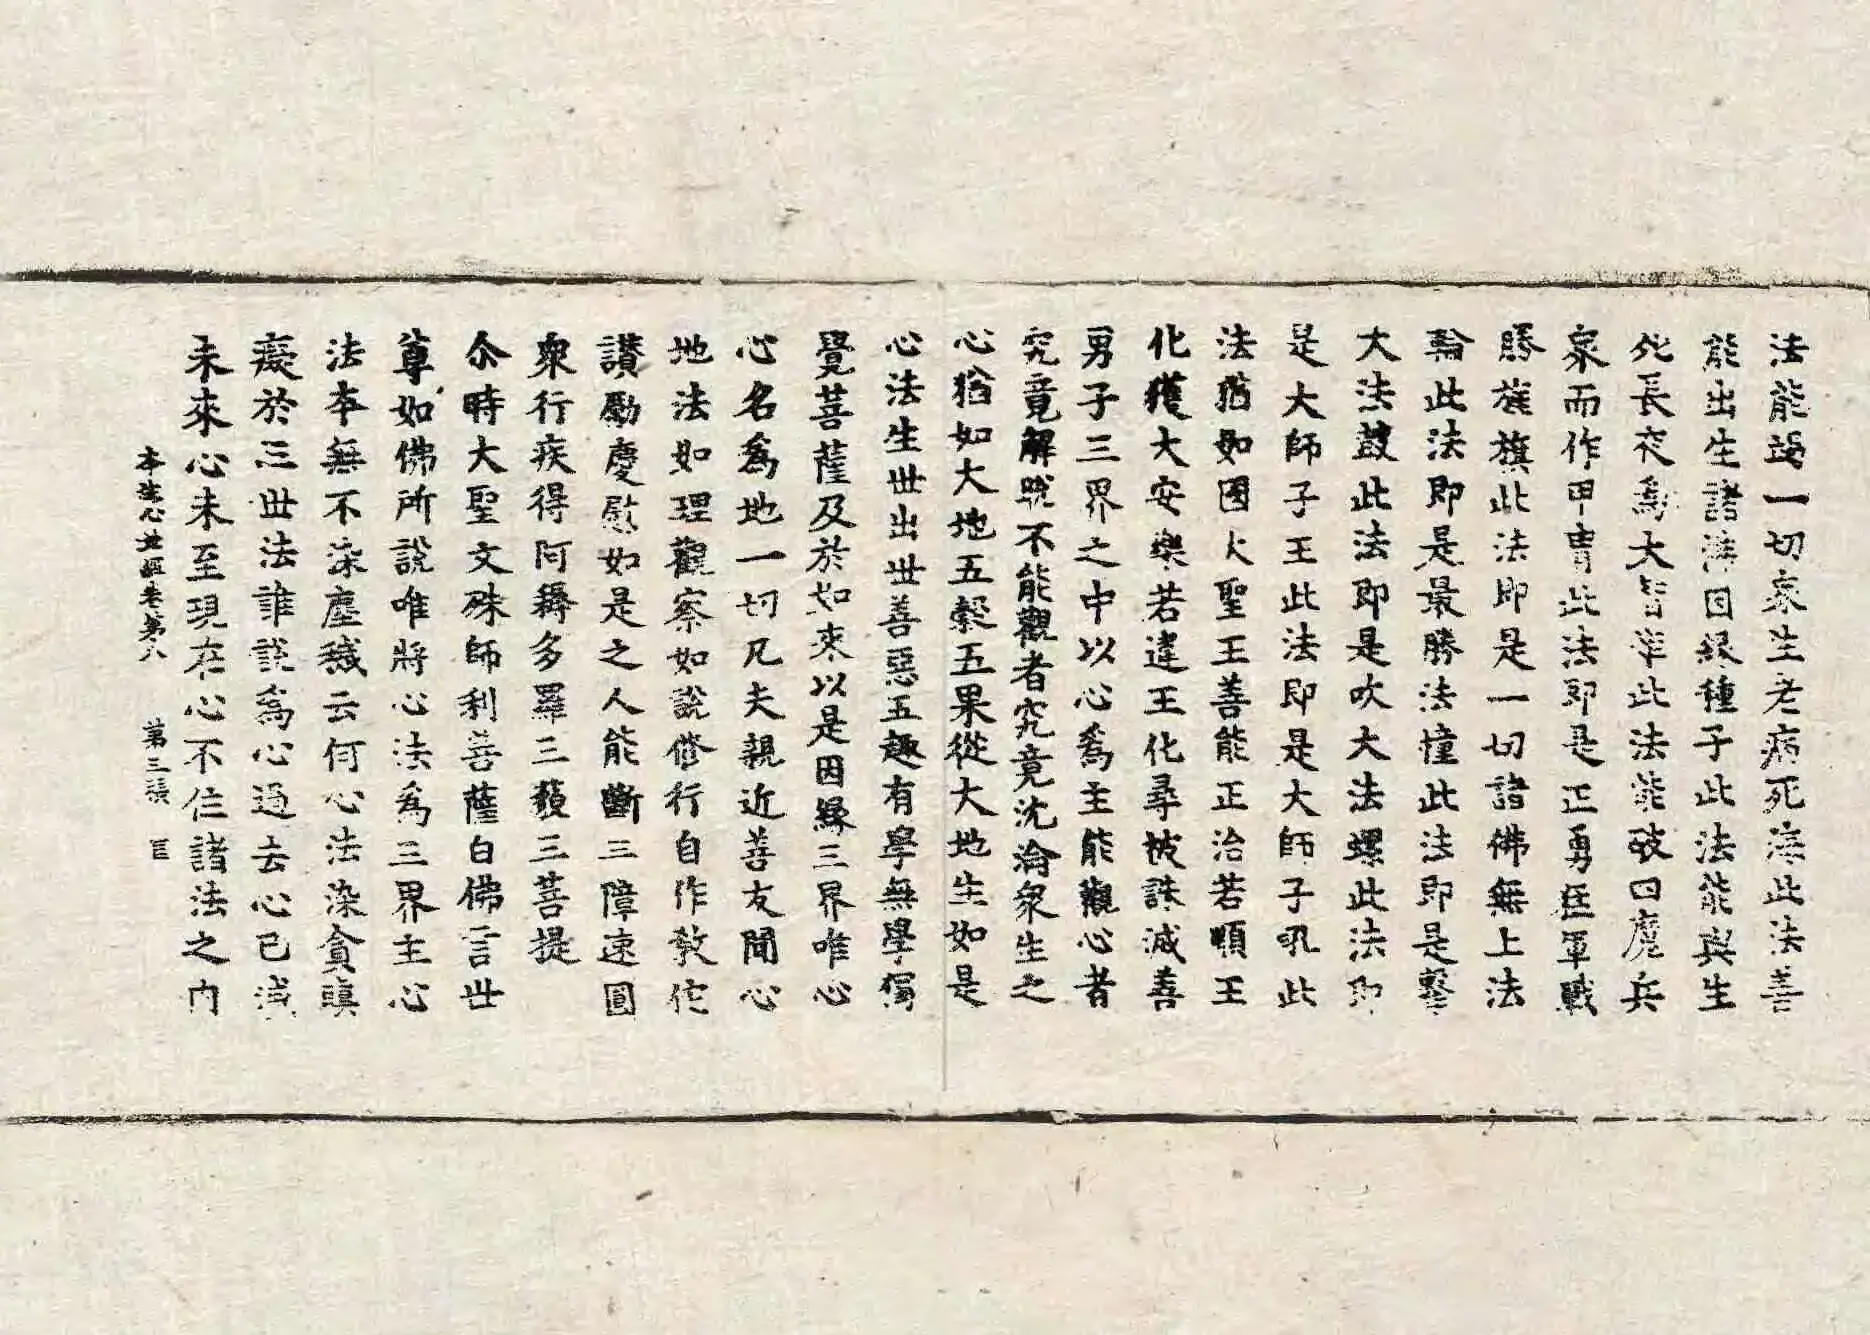 法能過一切衆生老病死海此法善
能出生諸海因緣種子此法能與生
死長夜爲大智炬此法能破四魔兵
衆而作甲冑此法即是正勇猛軍戰
勝旌旗此法即是一切諸佛無上法
輪此法即是最勝法幢此法即是擊
大法鼓此法即是吹大法螺此法即
是大師子王此法即是大師子吼此
法猶如國大聖王善能正治若順王
化獲大安樂若違王化尋被誅滅善
男子三界之中以心爲主能觀心者
究竟解脫不能觀者究竟沈淪衆生之
心猶如大地五穀五果從大地生如是
心法生世出世善惡五趣有學無學獨
覺菩薩及於如來以是因緣三界唯心
心名爲地一切凡夫親近善友聞心
地法如理觀察如說修行自作教佗
讃勵慶慰如是之人能斷三障速圓
衆行疾得阿耨多羅三藐三菩提
尒時大聖文殊師利菩薩白佛言世
尊如佛所說唯將心法爲三界主心
法本無不染塵穢云何心法染貪瞋
癡於三世法誰說爲心過去心已滅
未來心未至現在心不住諸法之內
本生心地經卷第八 第三張